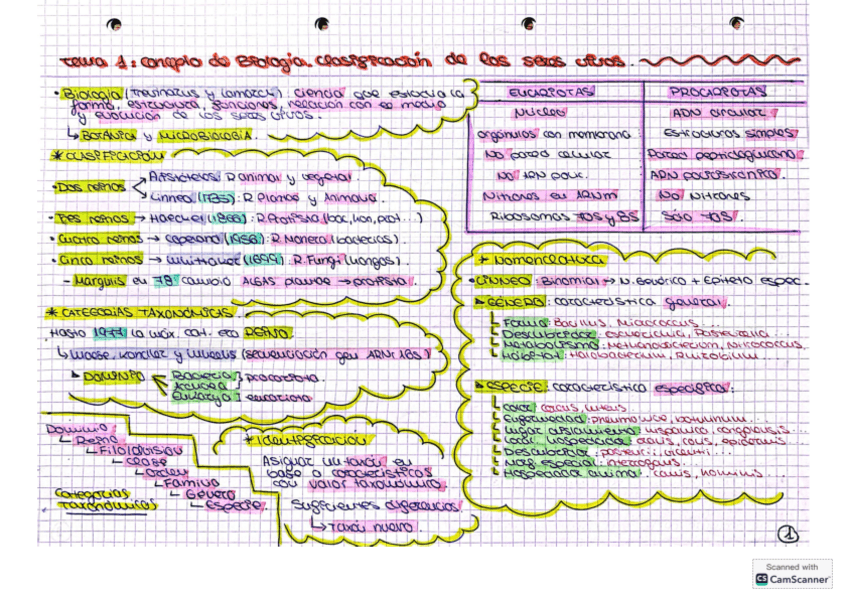 Tema 1: concepto de Biología. Clasificación de los seres vivos.
• Biología (Treviranus y Lamarck) ciencia que estudia la
forma, estructura, funciones, relación con el medio
y evolución de los seres vivos.
↳ BOTÁNICA y MICROBIOLOGÍA.
* CLASIFICACIÓN
• Dos reinos
Aristóteles: R animal y vegetal.
Linneo (1735): R Plantae y Animalia.
• Tres reinos → Haeckel (1866): R. Protista (bac, hon, prot...)
• Cuatro reinos → Copeland (1956): R. Monera (bacterias).
• Cinco reinos → Whittaker (1969): R. Fungi (hongos).
- Margulis en 78 cambió ALGAS plantae → protista.
* CATEGORÍAS TAXONÓMICAS
Hasta 1977 la máx. cat. era REINO.
↳ Woese, Kandler y Wheelis (secuenciación gen ARNr 16S)
▸ DOMINIO
Bacteria } procariota.
Archaea
Eukarya } eucariota
Dominio
↳ Reino
↳ Filo/división
↳ Clase
↳ Orden
↳ Familia
↳ Género
↳ Especie.
Categorías
taxonómicas
* Identificación
Asignar un taxón en
base a características
con valor taxonómico.
Suficientes diferencias.
↳ Taxón nuevo.
EUCARIOTAS PROCARIOTAS
Núcleo ADN circular
orgánulos con membrana Estructuras simples
No pared celular Pared peptidoglucano.
No ARN polic. ARN policistrónico.
Intrones en ARNm No intrones
Ribosomas 70S y 80S Sólo 70S.
* Nomenclatura
• LINNEO: Binomial → N. Genérico + Epíteto espec.
▸ GÉNERO: característica general.
↳ Forma: Bacillus, Micrococcus...
↳ Descubridor: Escherichia, Pasteurella...
↳ Metabolismo: Methanobacterium, Nitrococcus.
↳ Hábitat: Halobacterium, Rhizobium...
▸ ESPECIE: característica específica.
↳ Color: luteus...
↳ Enfermedad: pneumoniae,
↳ Lugar aislamiento: hispanica,
↳ Local. hospedador: epidermis
↳ Descubridor: pasteurii,
↳
↳ Hospedador anima: canis, hominis...
1
Scanned with
CS CamScanner